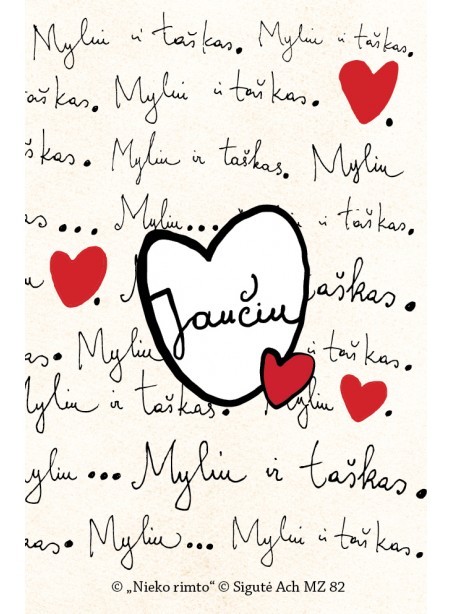 Myliu ir taškas. Myliu ir taškas.
taškas. Myliu ir taškas.
škas. Myliu ir taškas. Myliu
s... Myliu... ir taškas.
Jaučiu taškas.
as. Myliu ir taškas.
Myliu ir taškas. Myliu
yliu... Myliu ir taškas.
as. Myliu... Myliu ir taškas.
© „Nieko rimto“ © Sigutė Ach MZ 82